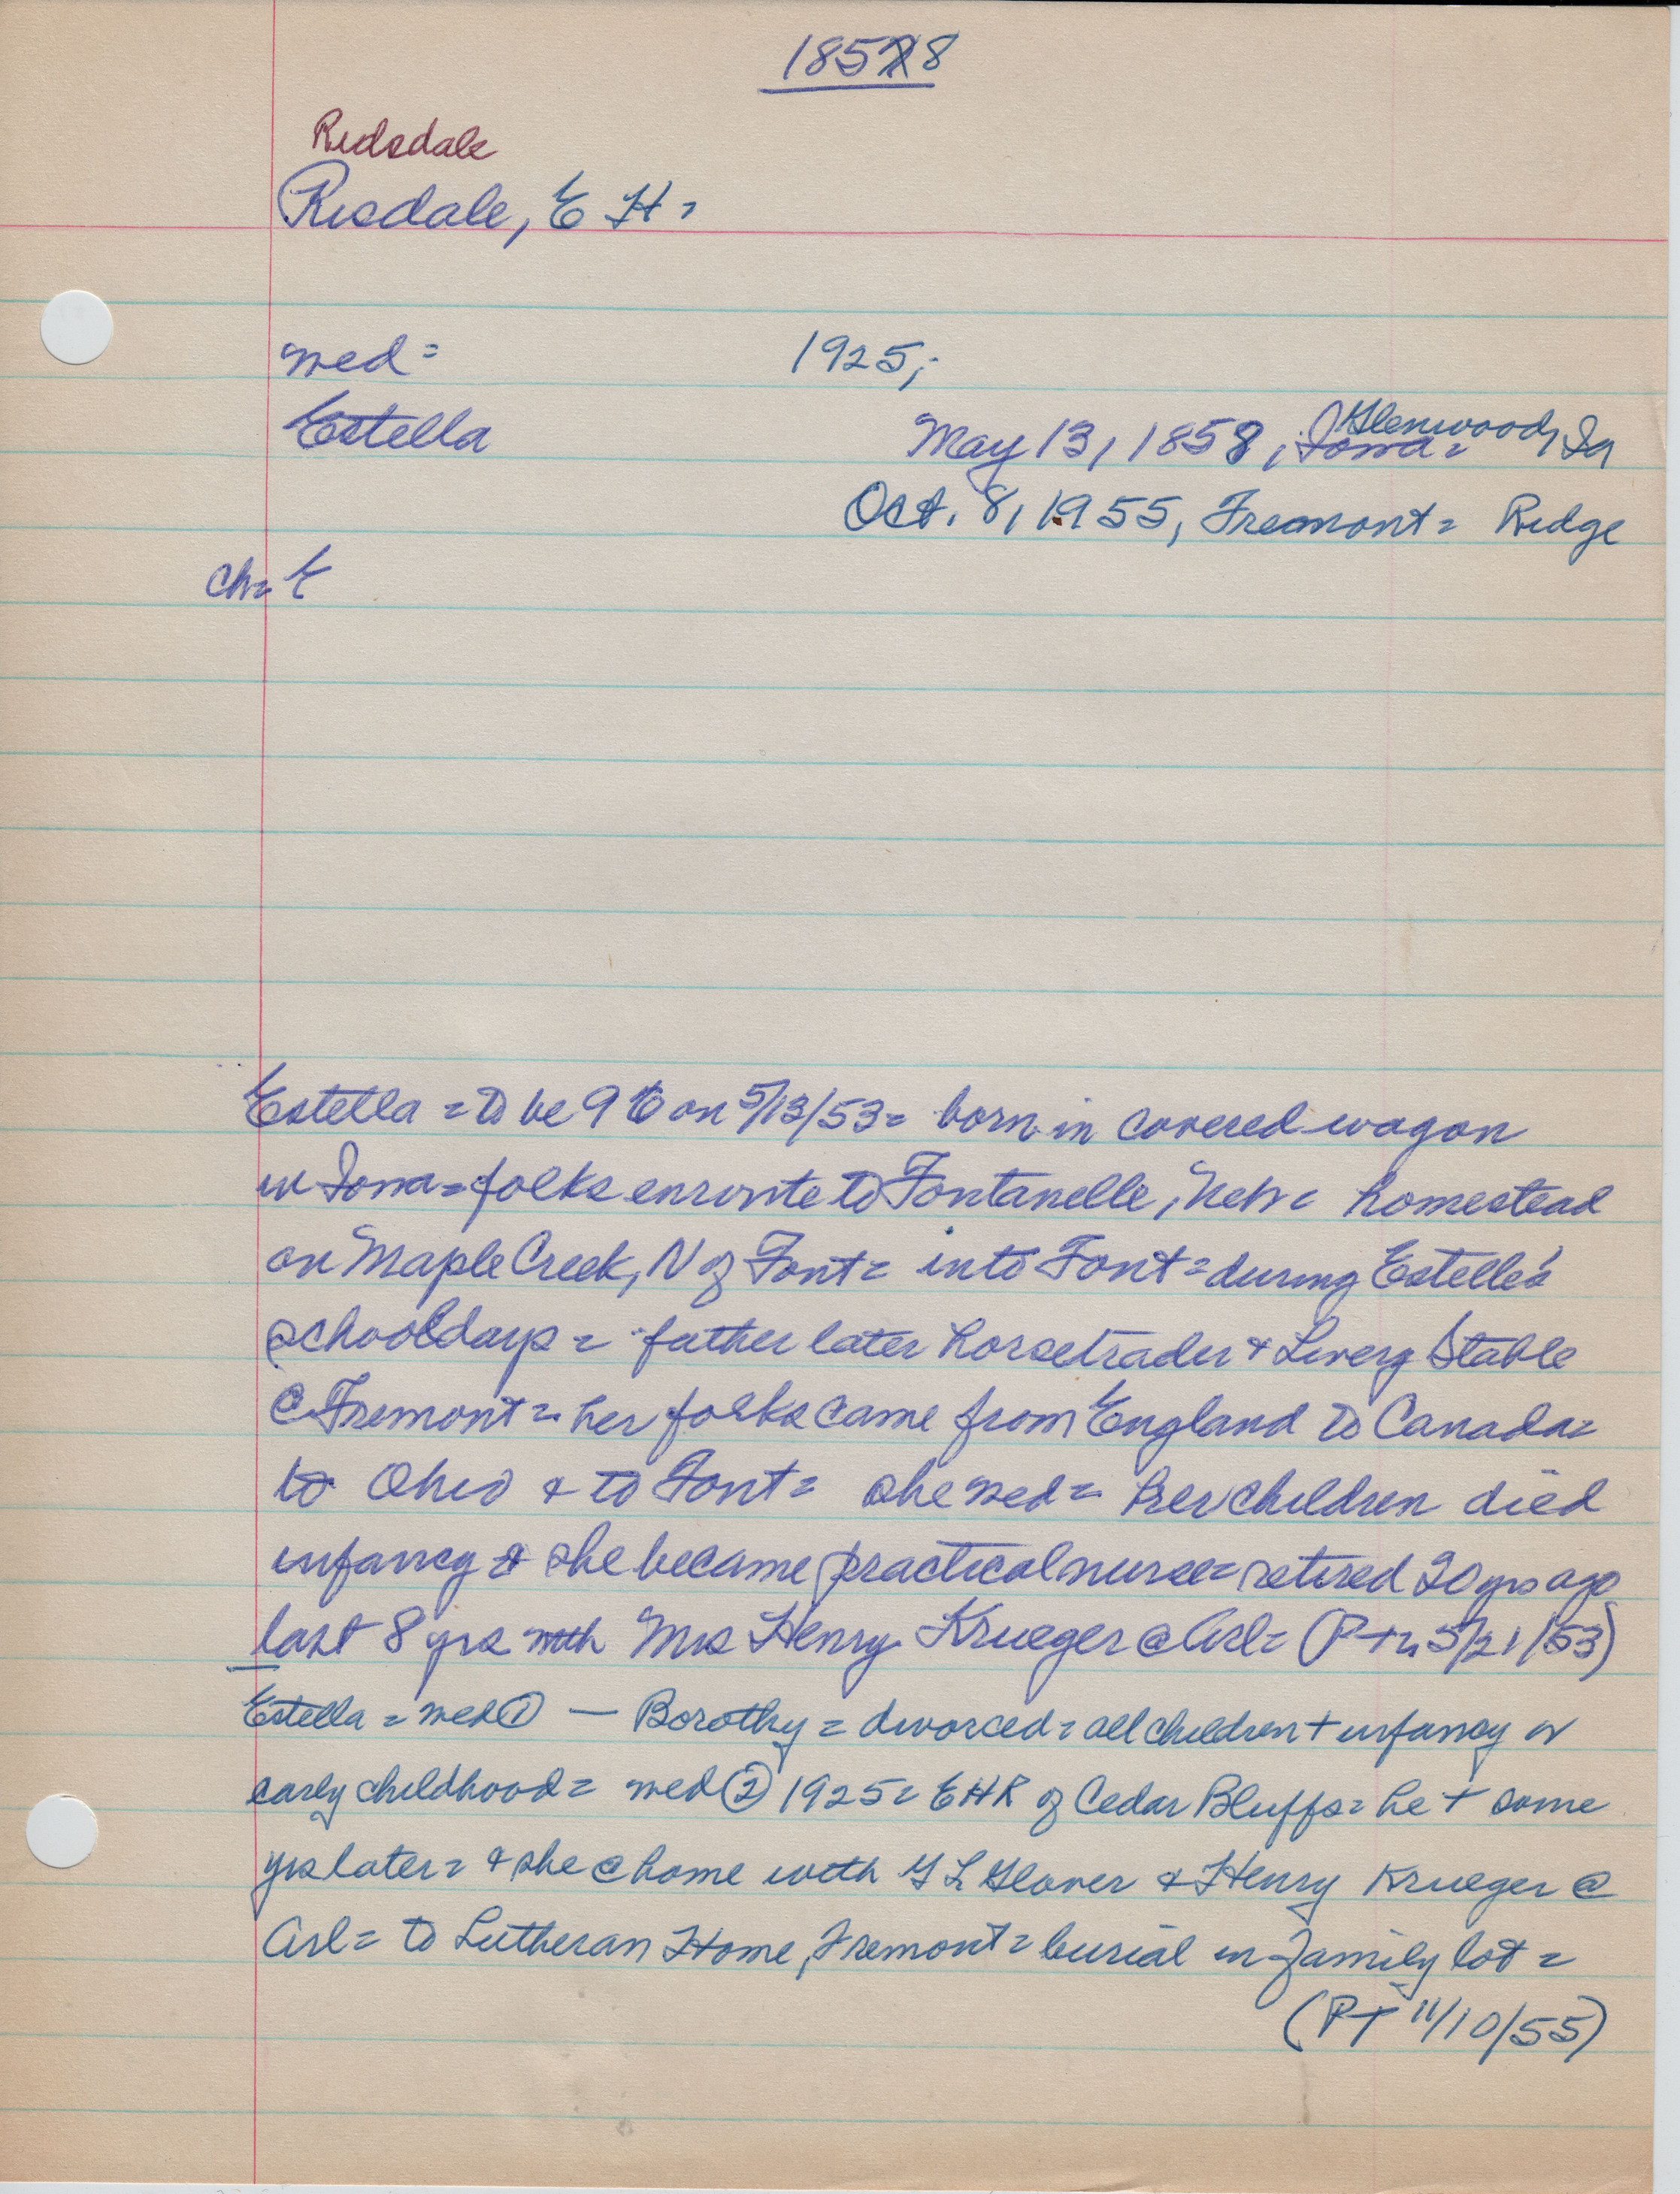 1858
Ridsdale
Risdale, E H =
med = 1925;
Estella May 13, 1858, Iowa = Glenwood, Ia
Oct. 8, 1955, Fremont = Ridge
Ch =
Estella = to be 9 on 5/13/53 = born in covered wagon
in Iowa = folks enroute to Fontanelle, Neb = homestead
on Maple Creek, N of Font = into Font = during Estelle's
schooldays = father later horsetrader & Livery Stable
@ Fremont = her folks came from England to Canada =
to Ohio & to Font = she med = her children died
infancy & she became practical nurse = retired 20 yrs ago
last 8 yrs with Mrs Henry Krueger @ Arl = (P 5/21/53)
Estella = med ① — Borothy = divorced = all children + infancy or
early childhood = med ② 1925 = EHR of Cedar Bluffs = he + some
yrs later = & she @ home with G L Glover & Henry Krueger @
Arl = to Lutheran Home, Fremont = burial in family lot =
(PT 11/10/55)